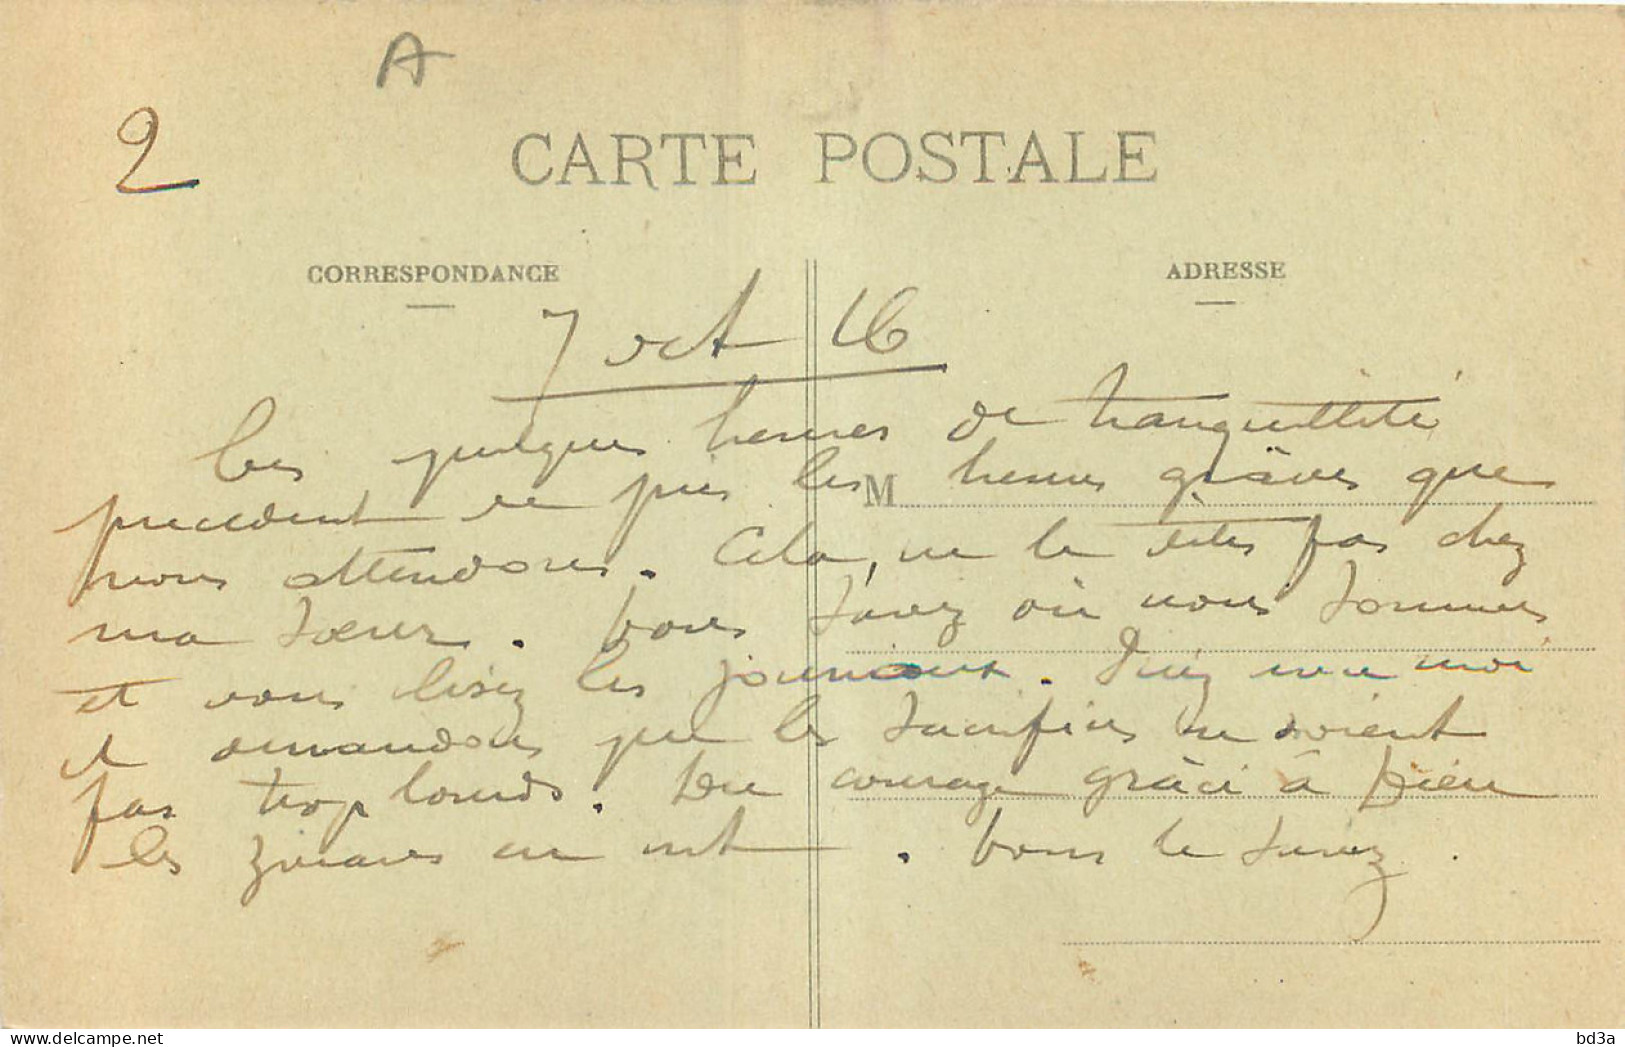 A
2
CARTE POSTALE
CORRESPONDANCE
ADRESSE
7 oct 16
Ces quelques heures de tranquillité
precedent de près les heures graves que
M
nous attendons. Cela, ne le dites pas chez
ma soeur. Vous savez où nous sommes
et vous lisez les journaux. Priez avec moi
et demandons que les sacrifices ne soient
pas trop lourds. Du courage grâce à Dieu
les zouaves en ont. Vous le savez.
delcampe.net
bd3a